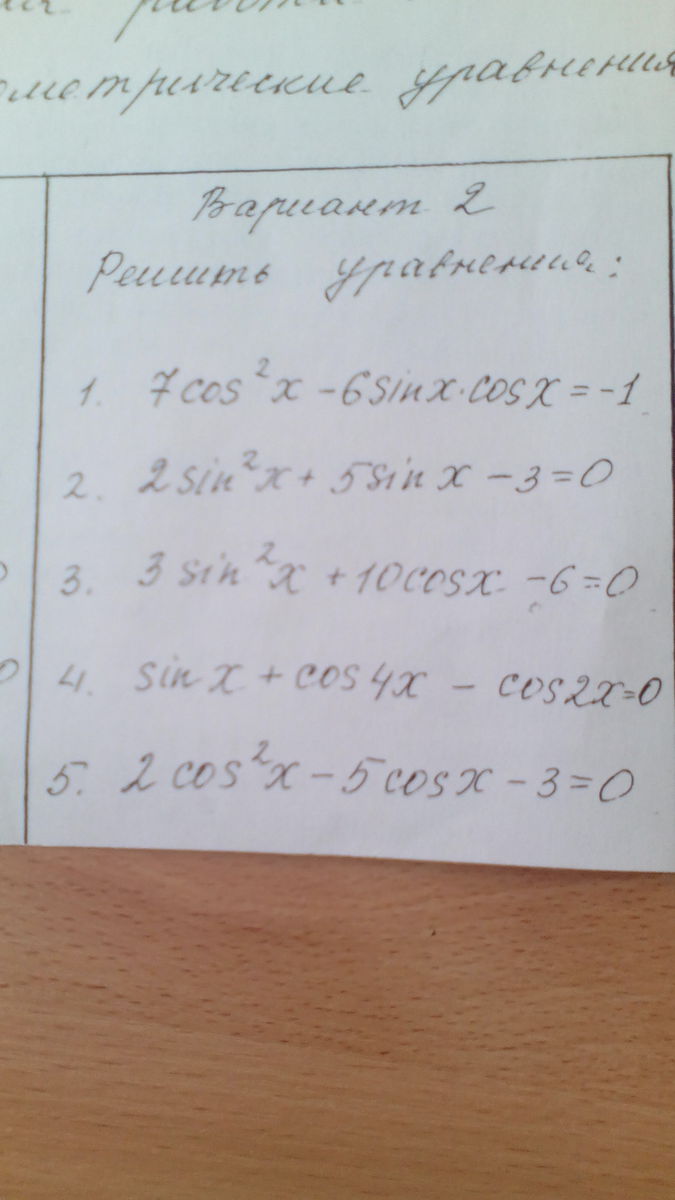 работы
ометрические уравнения
Вариант 2
Решить уравнения:
1. 7cos²x - 6sinx·cosx = -1
2. 2sin²x + 5sinx - 3 = 0
3. 3sin²x + 10cosx - 6 = 0
4. sinx + cos4x - cos2x = 0
5. 2cos²x - 5cosx - 3 = 0